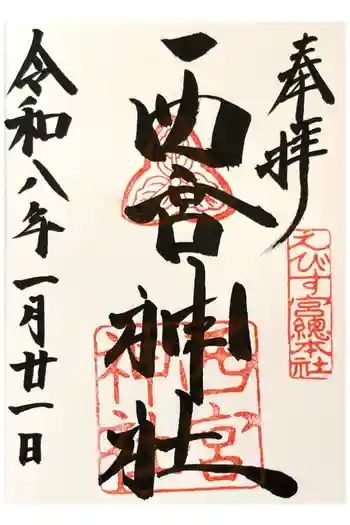 奉拝
えびす宮總本社
西宮神社
西宮神社
令和八年一月廿一日